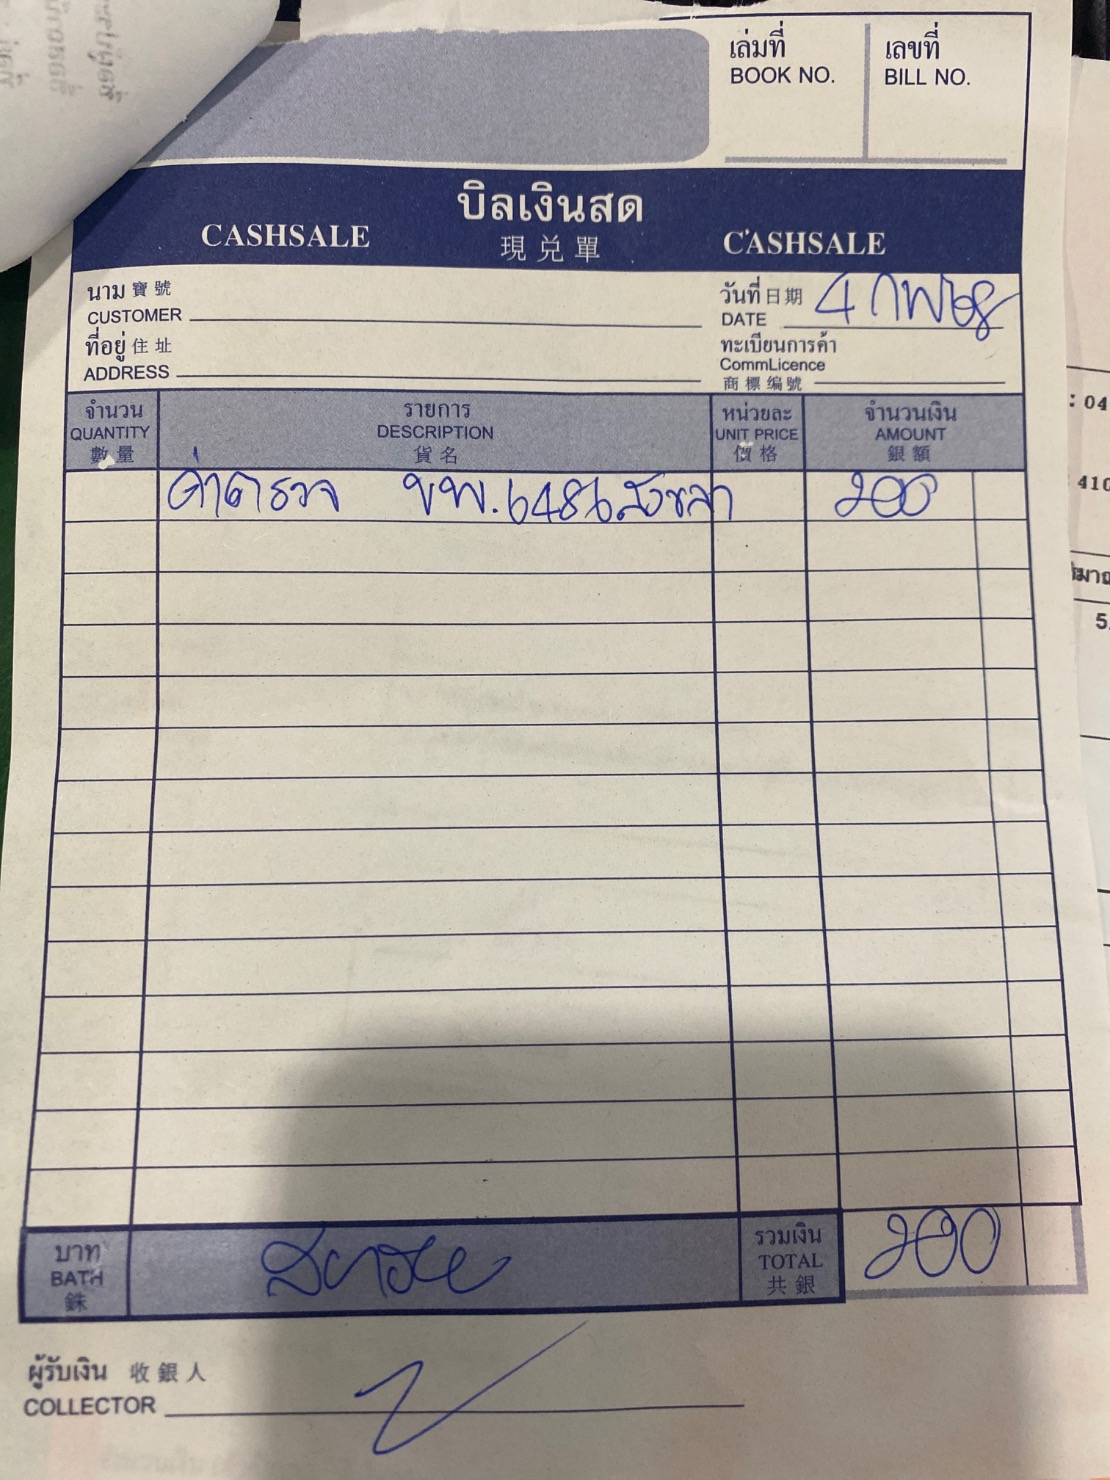 เล่มที่
BOOK NO.
เลขที่
BILL NO.
บิลเงินสด
CASHSALE 現兑單 CASHSALE
นาม 寶號
CUSTOMER
วันที่ 日期
DATE 4 กพ 68
ที่อยู่ 住址
ADDRESS
ทะเบียนการค้า
CommLicence
商標编號
จำนวน
QUANTITY
數量
รายการ
DESCRIPTION
貨名
หน่วยละ
UNIT PRICE
價格
จำนวนเงิน
AMOUNT
銀額
ค่าตรวจ ขพ.6486 สงขลา 200
บาท
BATH
銖
รวมเงิน
TOTAL
共銀
200
ผู้รับเงิน 收銀人
COLLECTOR
: 04
410
5.